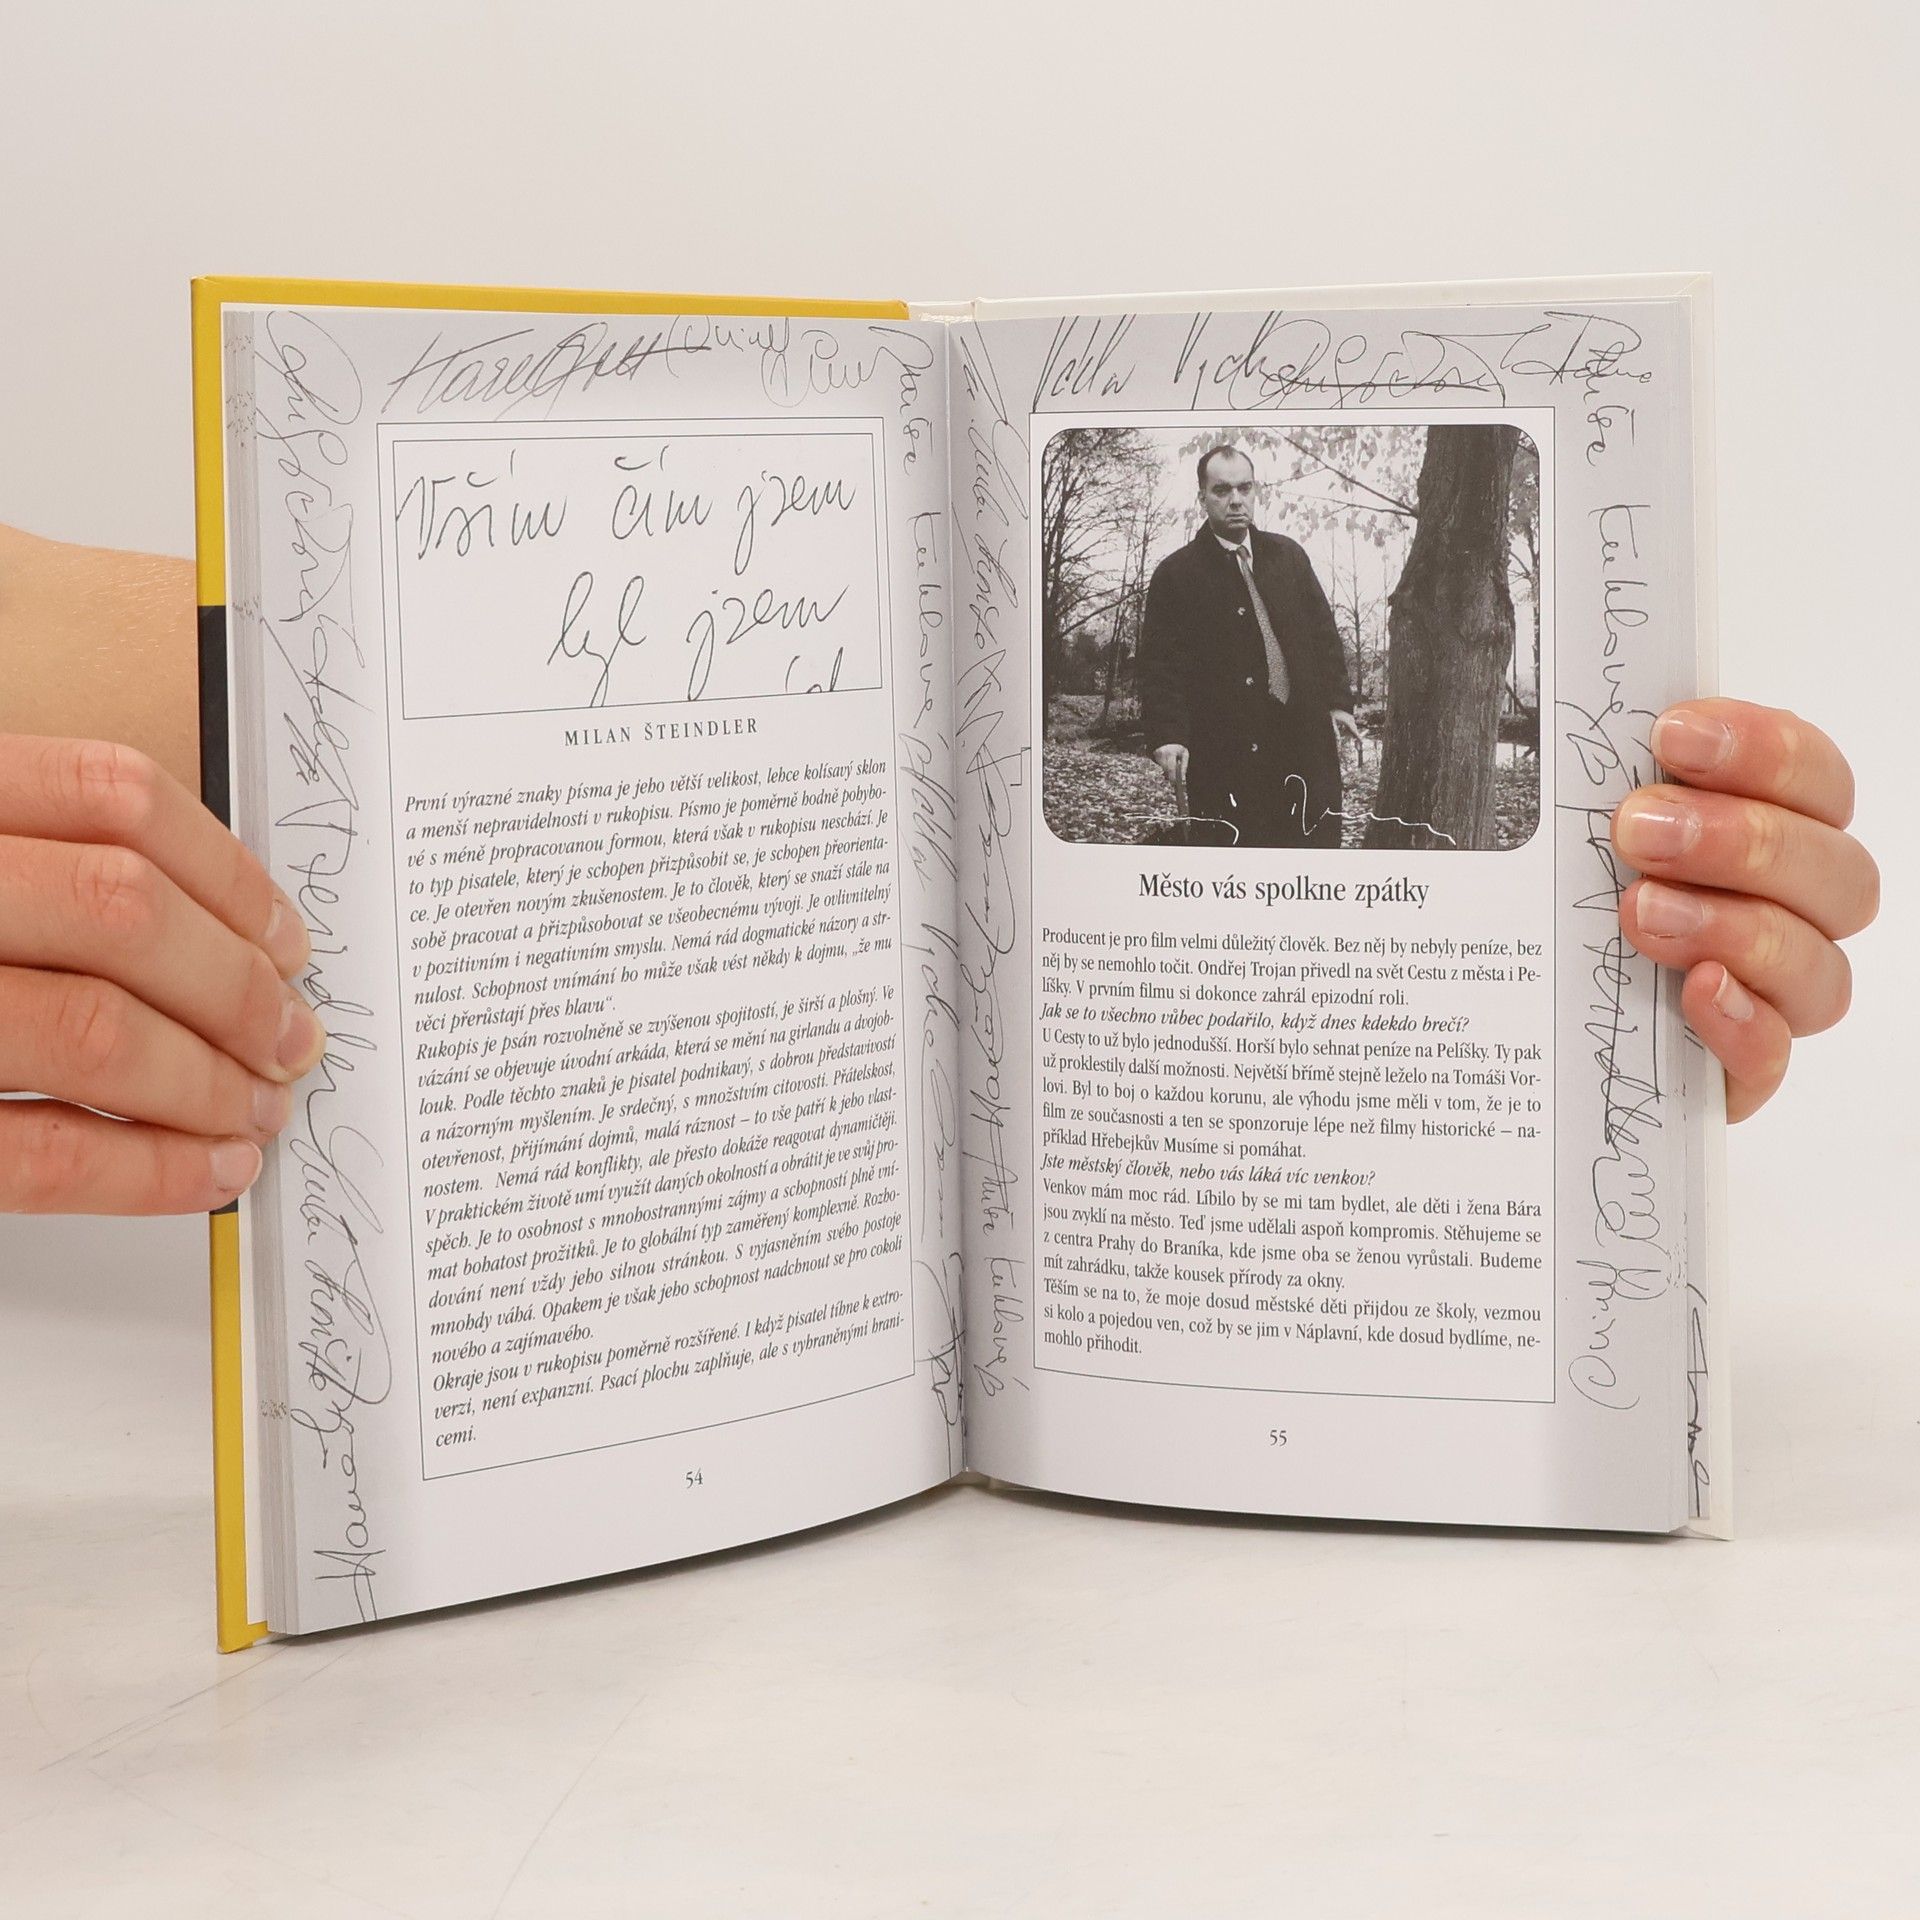 Vším čím jsem
byl jsem
MILAN ŠTEINDLER
První výrazné znaky písma je jeho větší velikost, lehce kolísavý sklon
a menší nepravidelnosti v rukopisu. Písmo je poměrně hodně pohybo-
vé s méně propracovanou formou, která však v rukopisu neschází. Je
to typ pisatele, který je schopen přizpůsobit se, je schopen přeorienta-
ce. Je otevřen novým zkušenostem. Je to člověk, který se snaží stále na
sobě pracovat a přizpůsobovat se všeobecnému vývoji. Je ovlivnitelný
v pozitivním i negativním smyslu. Nemá rád dogmatické názory a str-
nulost. Schopnost vnímání ho může však vést někdy k dojmu, „že mu
věci přerůstají přes hlavu“.
Rukopis je psán rozvolněně se zvýšenou spojitostí, je širší a plošný. Ve
vázání se objevuje úvodní arkáda, která se mění na girlandu a dvojob-
louk. Podle těchto znaků je pisatel podnikavý, s dobrou představivostí
a názorným myšlením. Je srdečný, s množstvím citovosti. Přátelskost,
otevřenost, přijímání dojmů, malá ráznost – to vše patří k jeho vlast-
nostem. Nemá rád konflikty, ale přesto dokáže reagovat dynamičtěji.
V praktickém životě umí využít daných okolností a obrátit je ve svůj pro-
spěch. Je to osobnost s mnohostrannými zájmy a schopností plně vní-
mat bohatost prožitků. Je to globální typ zaměřený komplexně. Rozho-
dování není vždy jeho silnou stránkou. S vyjasněním svého postoje
mnohdy váhá. Opakem je však jeho schopnost nadchnout se pro cokoli
nového a zajímavého.
Okraje jsou v rukopisu poměrně rozšířené. I když pisatel tíhne k extro-
verzi, není expanzní. Psací plochu zaplňuje, ale s vybraněnými hrani-
cemi.
54
Město vás spolkne zpátky
Producent je pro film velmi důležitý člověk. Bez něj by nebyly peníze, bez
něj by se nemohlo točit. Ondřej Trojan přivedl na svět Cestu z města i Pe-
líšky. V prvním filmu si dokonce zahrál epizodní roli.
Jak se to všechno vůbec podařilo, když dnes kdekdo brečí?
U Cesty to už bylo jednodušší. Horší bylo sehnat peníze na Pelíšky. Ty pak
už proklestily další možnosti. Největší břímě stejně leželo na Tomáši Vor-
lovi. Byl to boj o každou korunu, ale výhodu jsme měli v tom, že je to
film ze současnosti a ten se sponzoruje lépe než filmy historické – na-
příklad Hřebejkův Musíme si pomáhat.
Jste městský člověk, nebo vás láká víc venkov?
Venkov mám moc rád. Líbilo by se mi tam bydlet, ale děti i žena Bára
jsou zvyklí na město. Teď jsme udělali aspoň kompromis. Stěhujeme se
z centra Prahy do Braníka, kde jsme oba se ženou vyrůstali. Budeme
mít zahrádku, takže kousek přírody za okny.
Těším se na to, že moje dosud městské děti přijdou ze školy, vezmou
si kolo a pojedou ven, což by se jim v Náplavní, kde dosud bydlíme, ne-
mohlo přihodit.
55